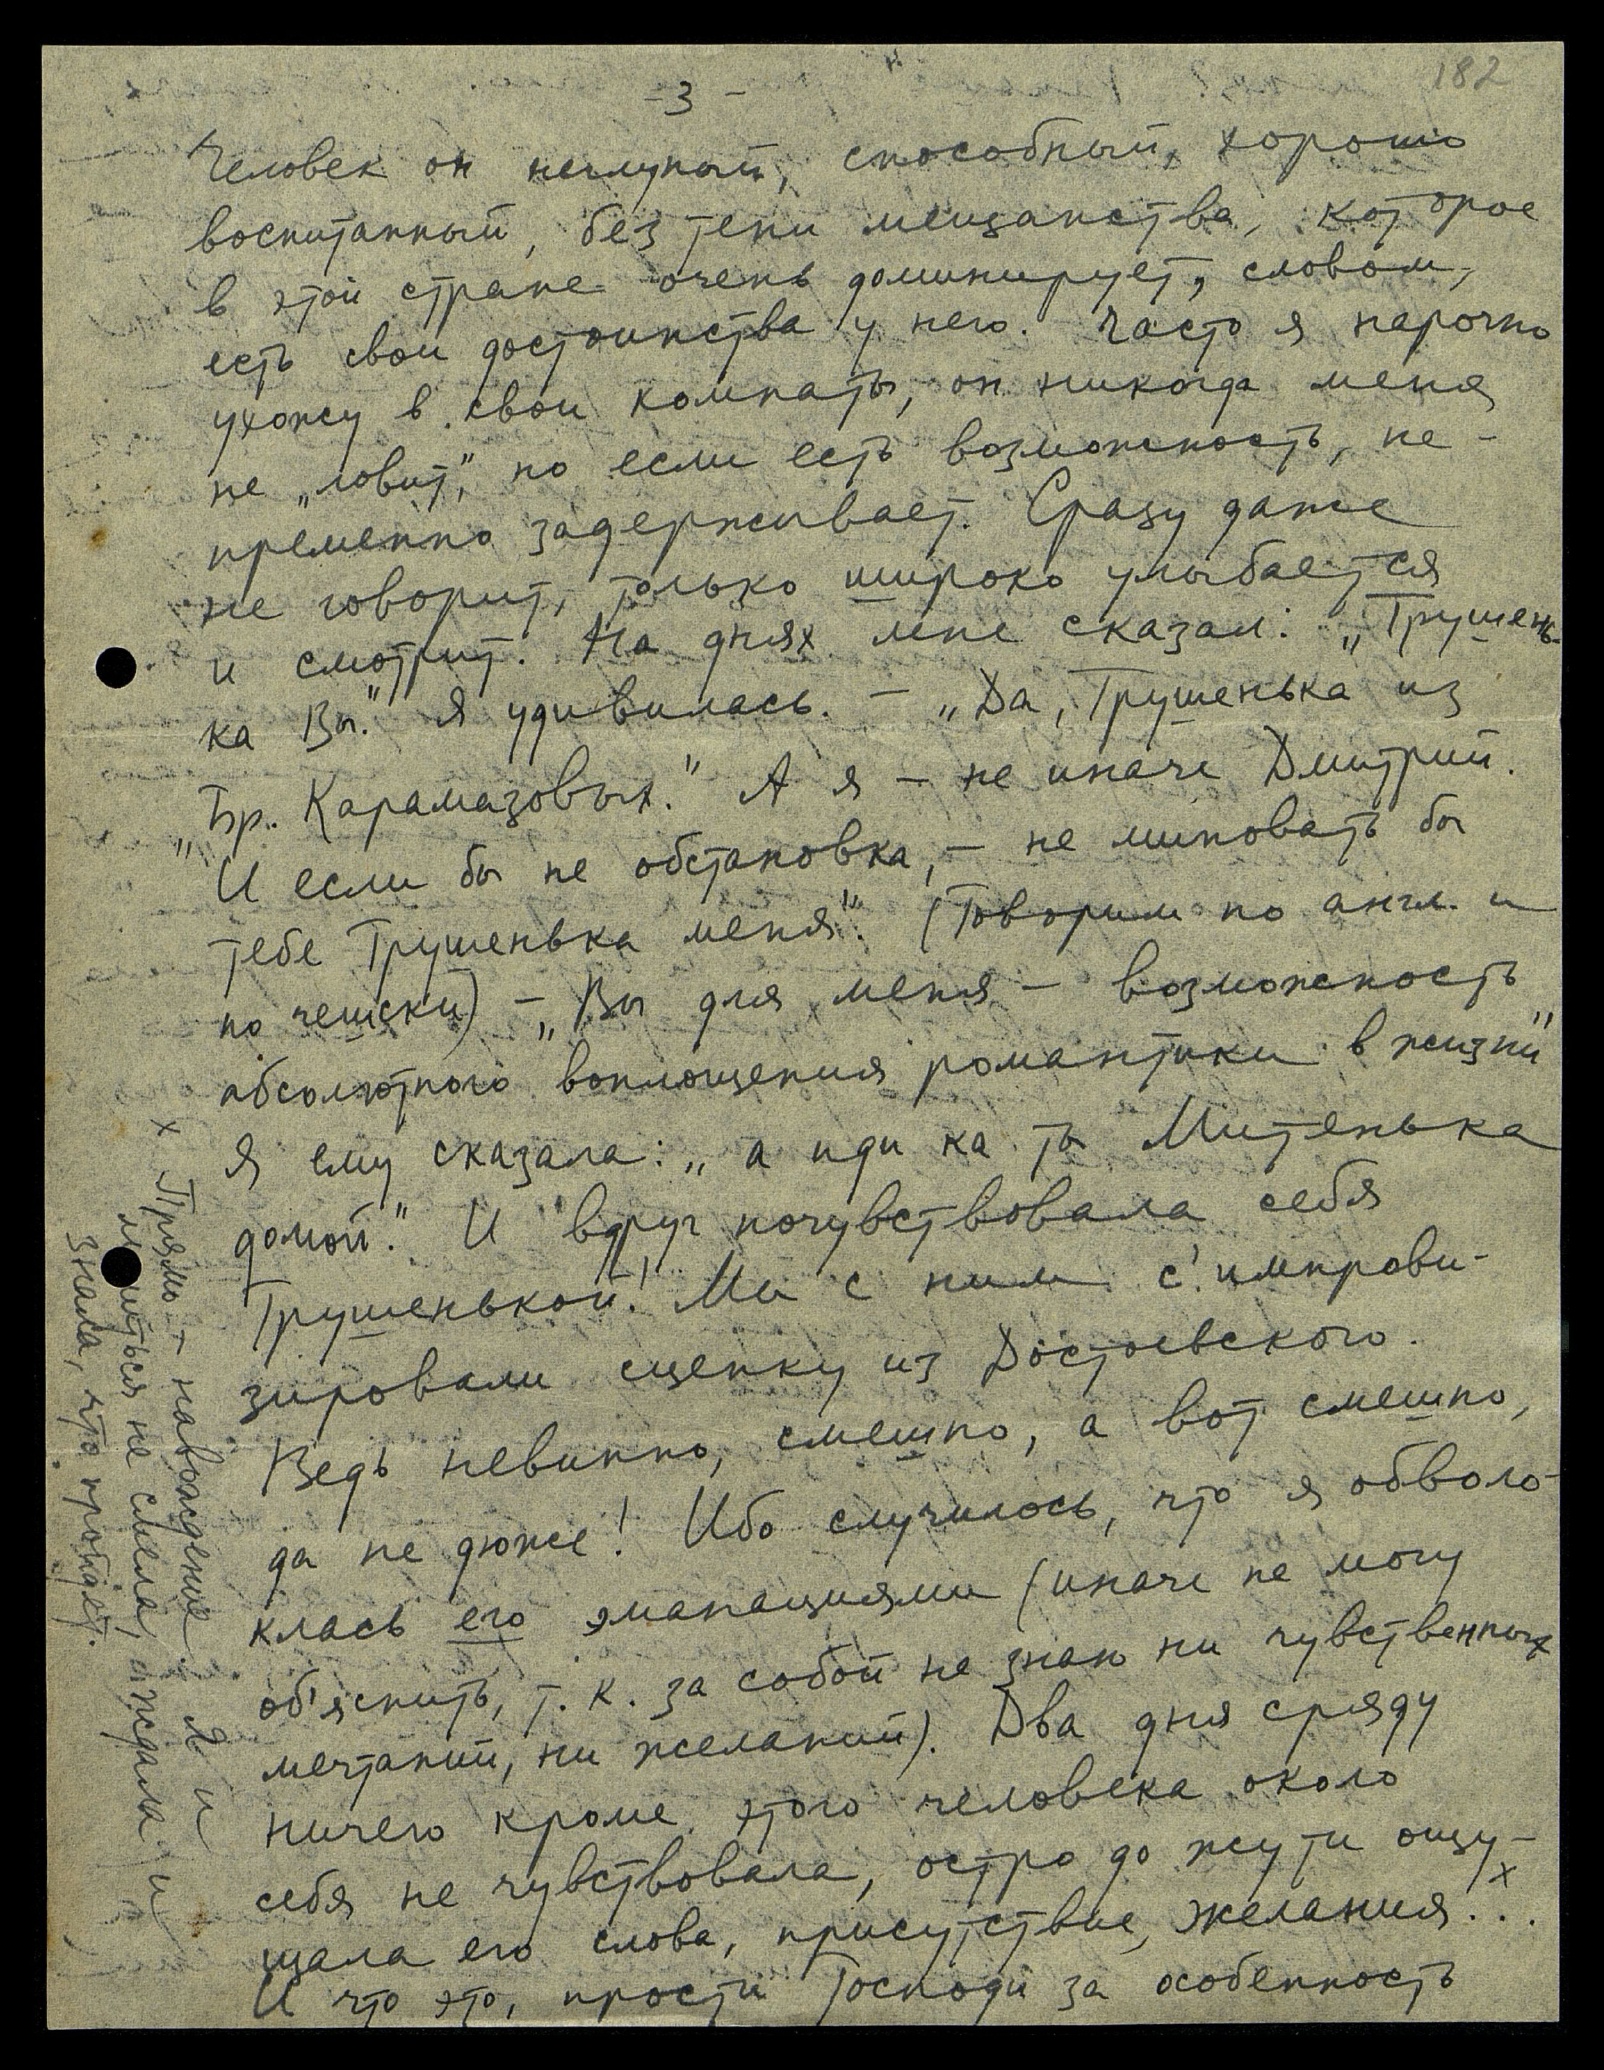 182
- 3 -
Человек он неглупый, способный, хорошо
воспитанный, без тени мещанства, которое
в этой стране очень доминирует, словом,
есть свои достоинства у него. Часто я нарочно
ухожу в свои комнаты, он никогда меня
не „ловит", но если есть возможность, не-
пременно задерживает. Сразу даже
не говорит, только широко улыбается
и смотрит. На днях мне сказал: „Грушень-
ка Вы." Я удивилась. — „Да, Грушенька из
„Бр. Карамазовых." А я — не иначе Дмитрий.
И если бы не обстановка, — не миновать бы
тебе Грушенька меня". (Говорим по англ. и
по чешски) — „Вы для меня — возможность
абсолютного воплощения романтики в жизни"
Я ему сказала: „а иди ка ты Митенька
домой." И вдруг почувствовала себя
Грушенькой! Мы с ним с'импрови-
зировали сценку из Достоевского.
Ведь невинно, смешно, а вот смешно,
да не дюже! Ибо случилось, что я обволо-
клась его эманациями (иначе не могу
об'яснить, т. к. за собой не знаю ни чувственных
мечтаний, ни желаний). Два дня сряду
ничего кроме этого человека около
себя не чувствовала, остро до жути ощу-
щала его слова, присутствие, желания x...
И что это, прости Господи за особенность
x Прямо — наваждение. Я и
молиться не смела, ждала и
знала, что пройдет.